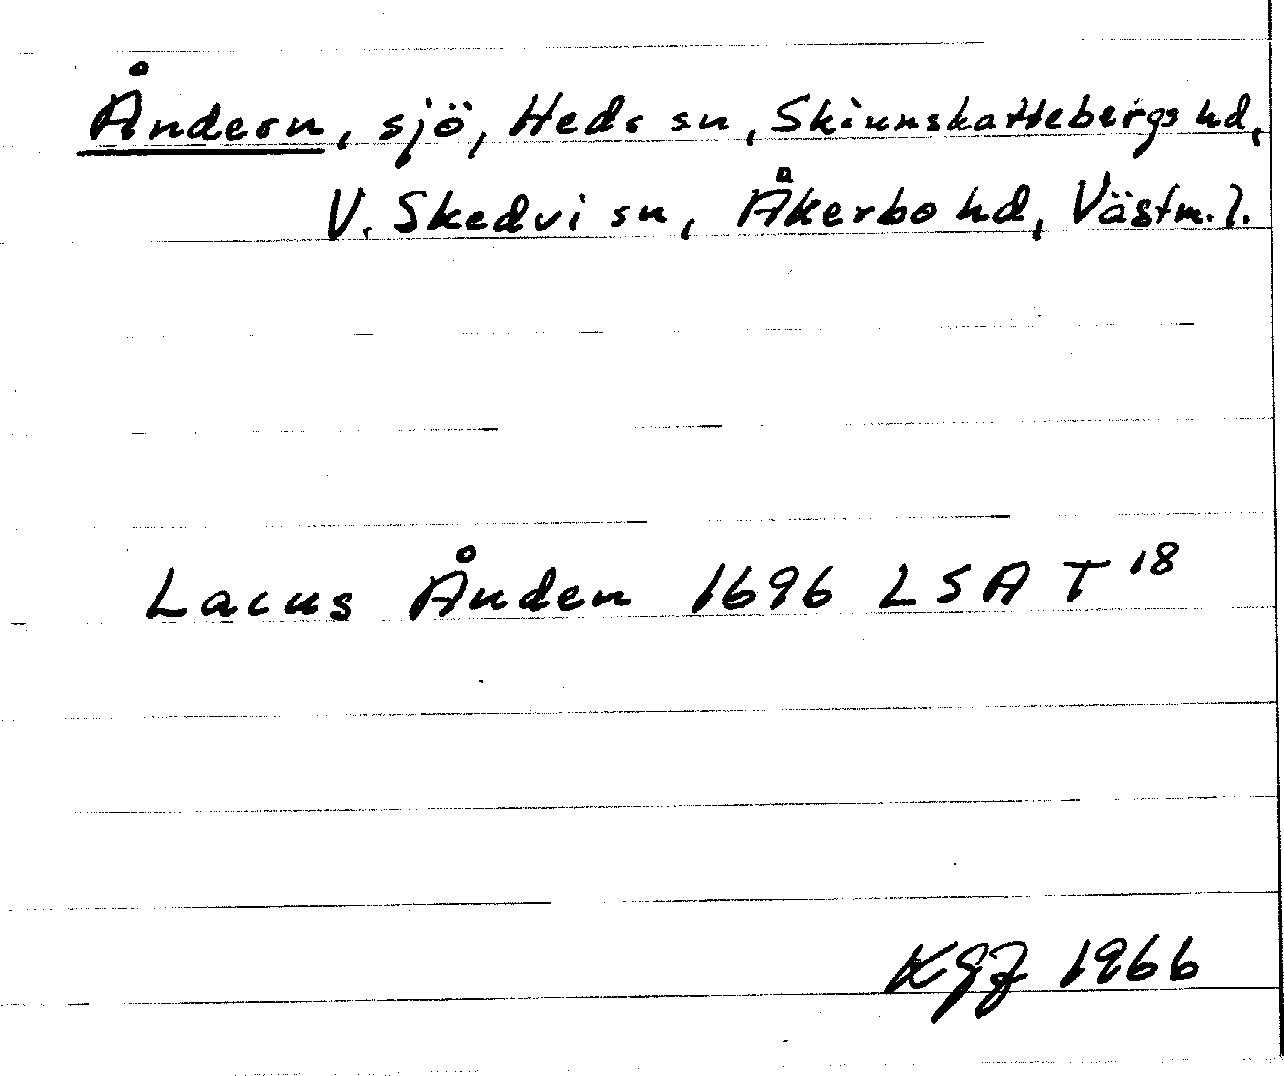 Åndern, sjö, Heds sn, Skinnskattebergs hd,
V. Skedvi sn, Åkerbo hd, Västm. l.
Lacus Ånden 1696 LSA T 18
KGJ 1966